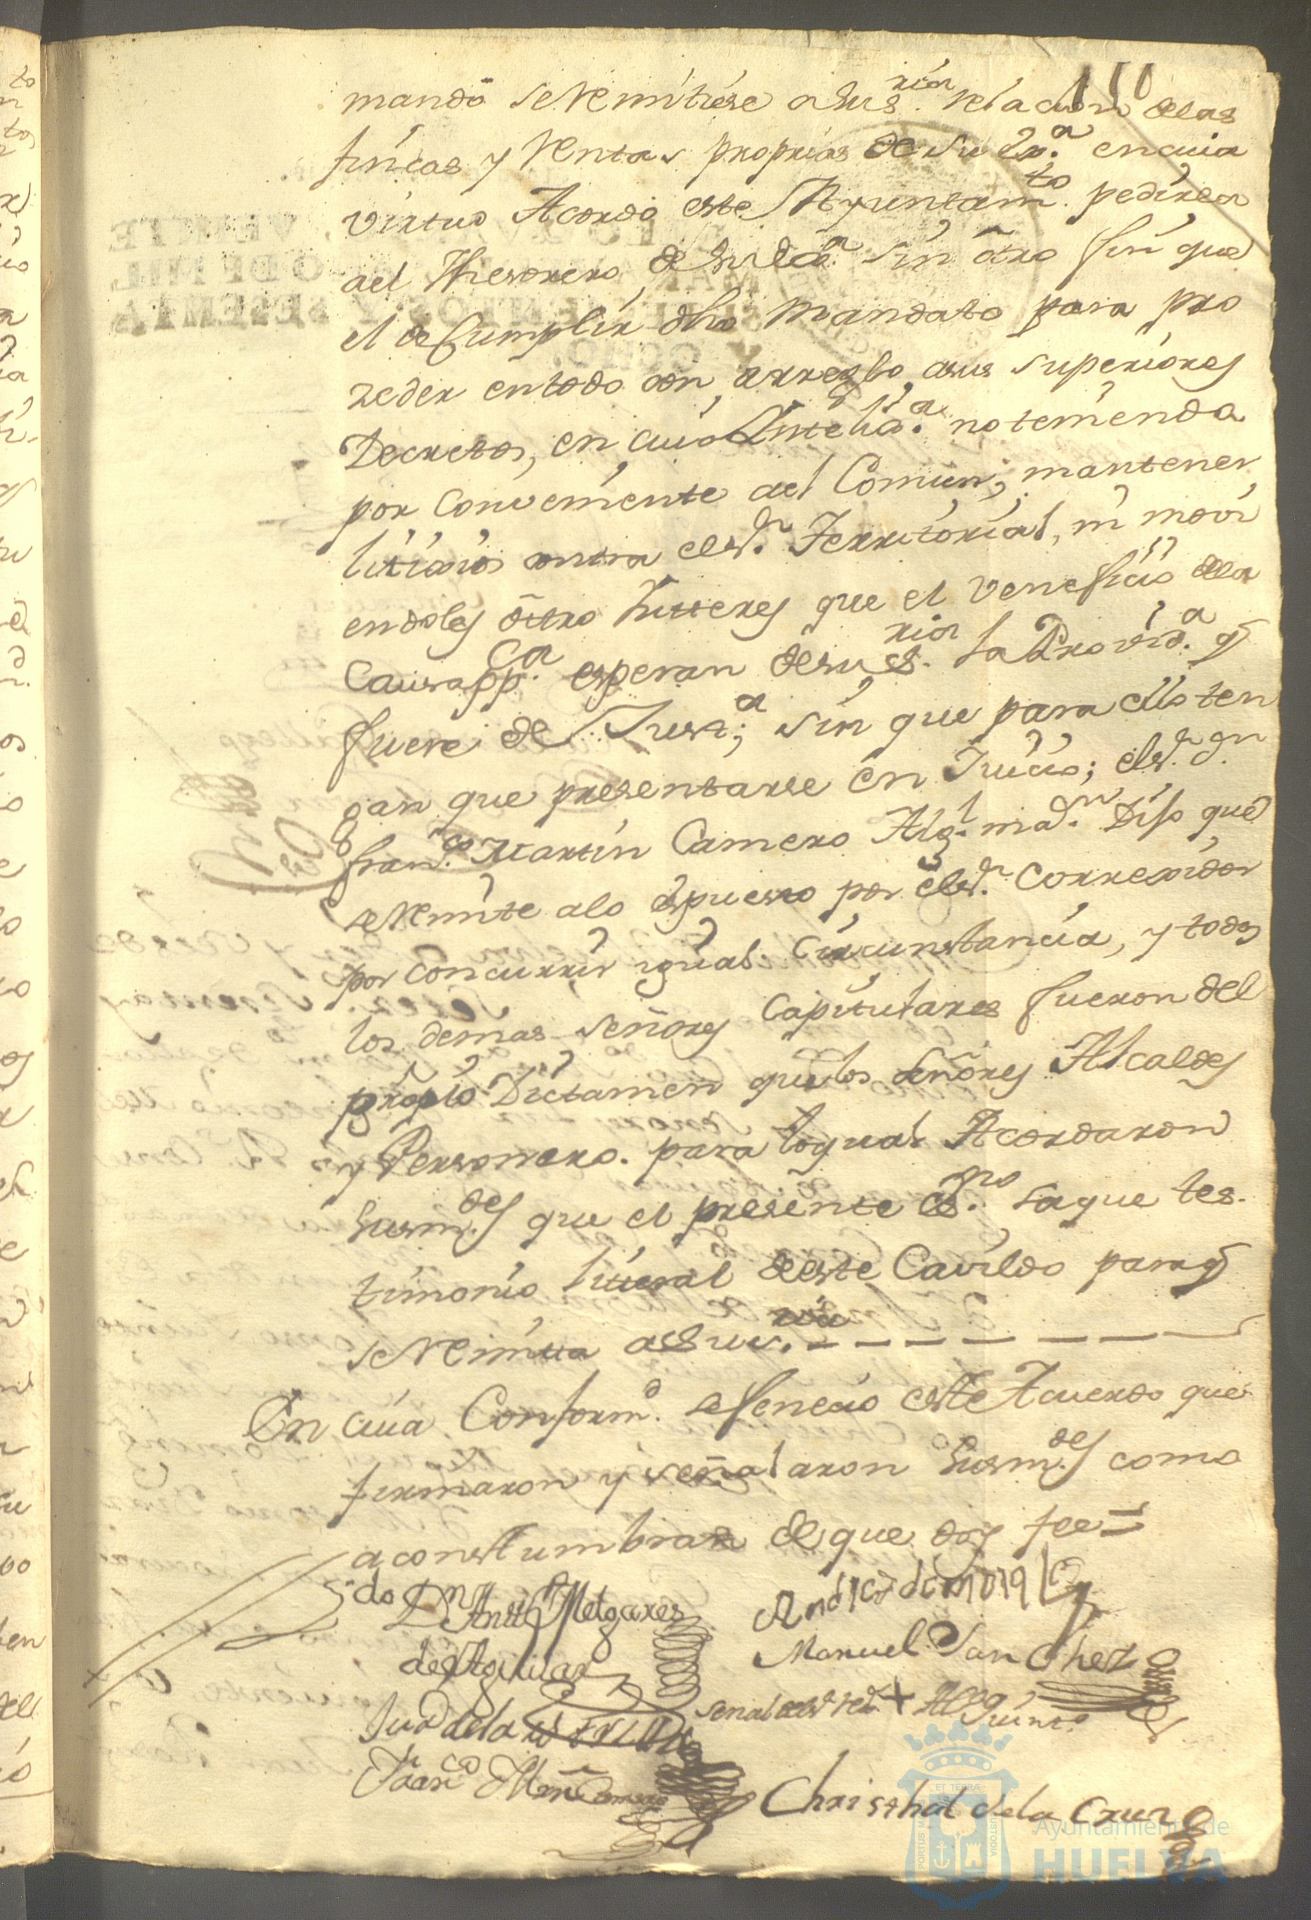 110
mando se remitiese a Sus.ria relacion delas
fincas y Rentas proprias de su Exa. en cuia
virtud Acordo este Ayuntamto. pedirla
ael Thesorero, de su Exa. sin otro fin que
el de Cumplir dho Mandato para pro
zeder entodo con arreglo asus superiores
Decretos, en cuia Inteliga. no teniendo
por Conveniente ael Comun; mantener
litixios contra elsr. Territorial, ni movi
endoles ôttro Ynteres que el veneficio dela
Causa ppca. esperan desu Sria. la Provida. q
fuere de Justa; sin que para ello ten
gan que presentarse en Juicio; elsr. Dn.
franco. Martin Camero Algl. mar. Dijo que
se remite alo espuesto por elsr. Correxidor
por concurrir igual Circunstancia, y todos
los demas señores Capitulares fueron del
proprio Dictamen quelos señores Alcaldes
y Personero. para loqual Acordaron
Susmdes. que el presente esno. saque tes-
timonio literal deeste Cavildo para q
se remita a Sus.ria
En cuia Conformd. sefenecio este Acuerdo que
firmaron y señalaron Susmdes. como
aconstumbran de que doy fee=
do Dn Anto Melgarexo
de Aguilar
Manuel Sanchez
señal delsr rexr + Alegria
Juo dela
Franco Mrn Camero
Christhal dela Cruz
PORTUS MARIS ET TERRÆ CUSTODIA
Ayuntamiento de
HUELVA